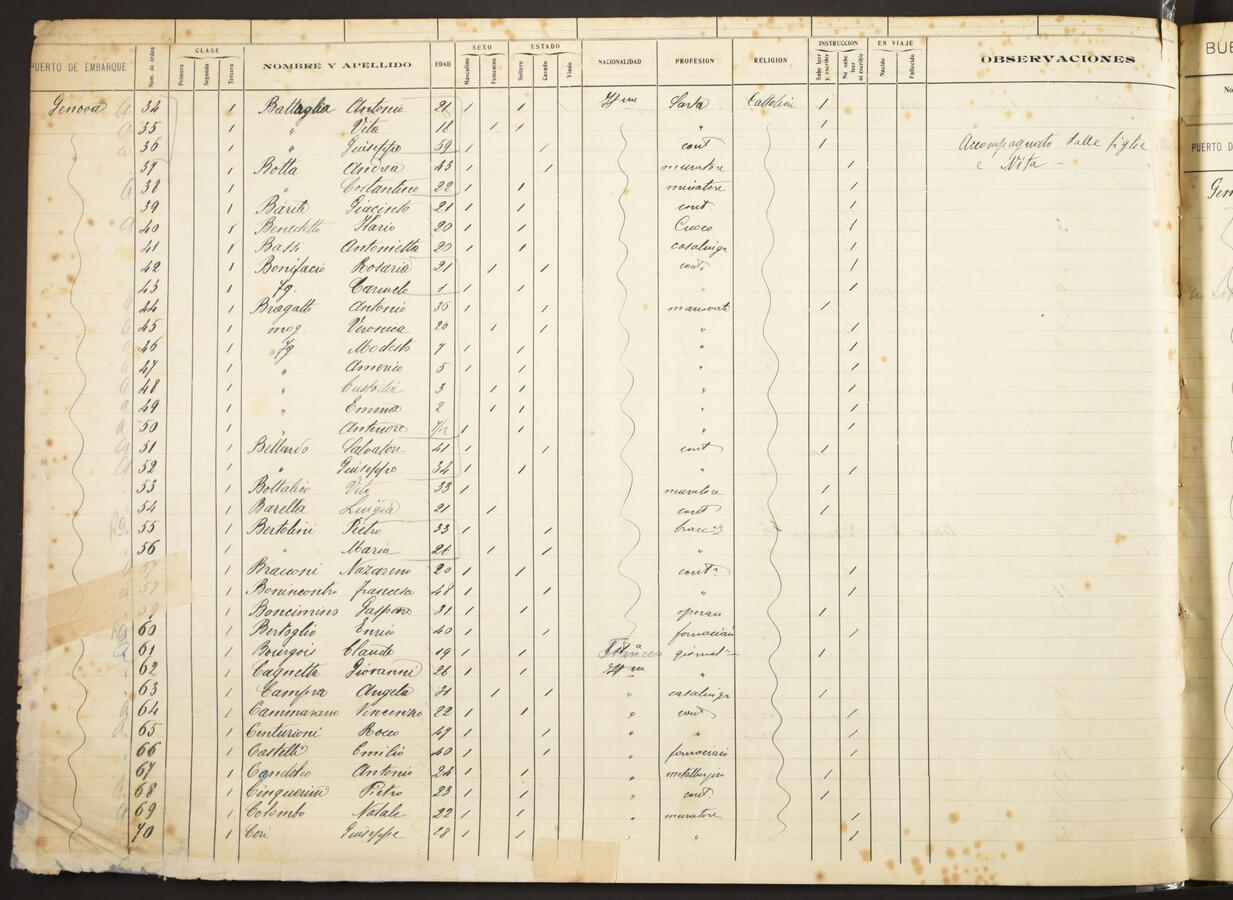 PUERTO DE EMBARQUE Num. de órden CLASE Primera Segunda Tercera NOMBRE Y APELLIDO EDAD SEXO Masculino Femenino ESTADO Soltero Casado Viudo NACIONALIDAD PROFESION RELIGION INSTRUCCION Sabe leer y escribir No sabe leer ni escribir EN VIAJE Nacido Fallecido OBSERVACIONES
Genova 34 / Battaglia Antonio 21 / / Itna Sarta Cattolica /
35 / " Vita 18 / / " /
36 / " Giuseppe 59 / / cont / Accompagnato dalle figlie
37 / Botta Andrea 43 / / muratore / e Vita -
38 / " Costantino 22 / / muratore /
39 / Barile Giacinto 21 / / cont /
40 / Benedetto Ilario 20 / / Cuoco /
41 / Bassi Antonietta 20 / / casalinga /
42 / Bonifacio Rosaria 21 / / cont /
43 / fg. Carmelo 1 / / " /
44 / Bragatto Antonio 35 / / manovale /
45 / mog Veronica 20 / / " /
46 / fg Modesto 7 / / " /
47 / " Americo 5 / / " /
48 / " Custodia 3 / / " /
49 / " Emma 2 / / " /
50 / " Antenore / / " /
51 / Bellardo Salvatore 41 / / cont /
52 / " Giuseppe 34 / / " /
53 / Vito 33 / muratore /
54 / Baretta Luigia 21 / cont /
55 / Bertolini Pietro 33 / /
56 / " Maria 26 / / "
/ Bracconi Nazareno 20 / / cont /
/ Bonincontro Francesco 48 / /
59 / Boncimino Gaspare 31 / / operaio /
60 / Bertoglio Enrico 40 / / fornaciaio /
61 / Bourgois Claude 19 / / Francese giornal /
62 / Cagnetta Giovanni 26 / / Itna "
63 / Campra Angela 31 / / " casalinga /
64 / Cammarano Vincenzo 22 / / " cont /
65 / Centurioni Rocco 49 / / " " /
66 / Castelli Emilio 40 / / " fornaciaio /
67 / Candelio Antonio 24 / / " metallurgico /
68 / Cinquerini Pietro 23 / / " cont /
69 / Colombo Natale 22 / / " muratore /
70 / Cori Giuseppe 28 / / " " /
BUE
PUERTO D
Gen